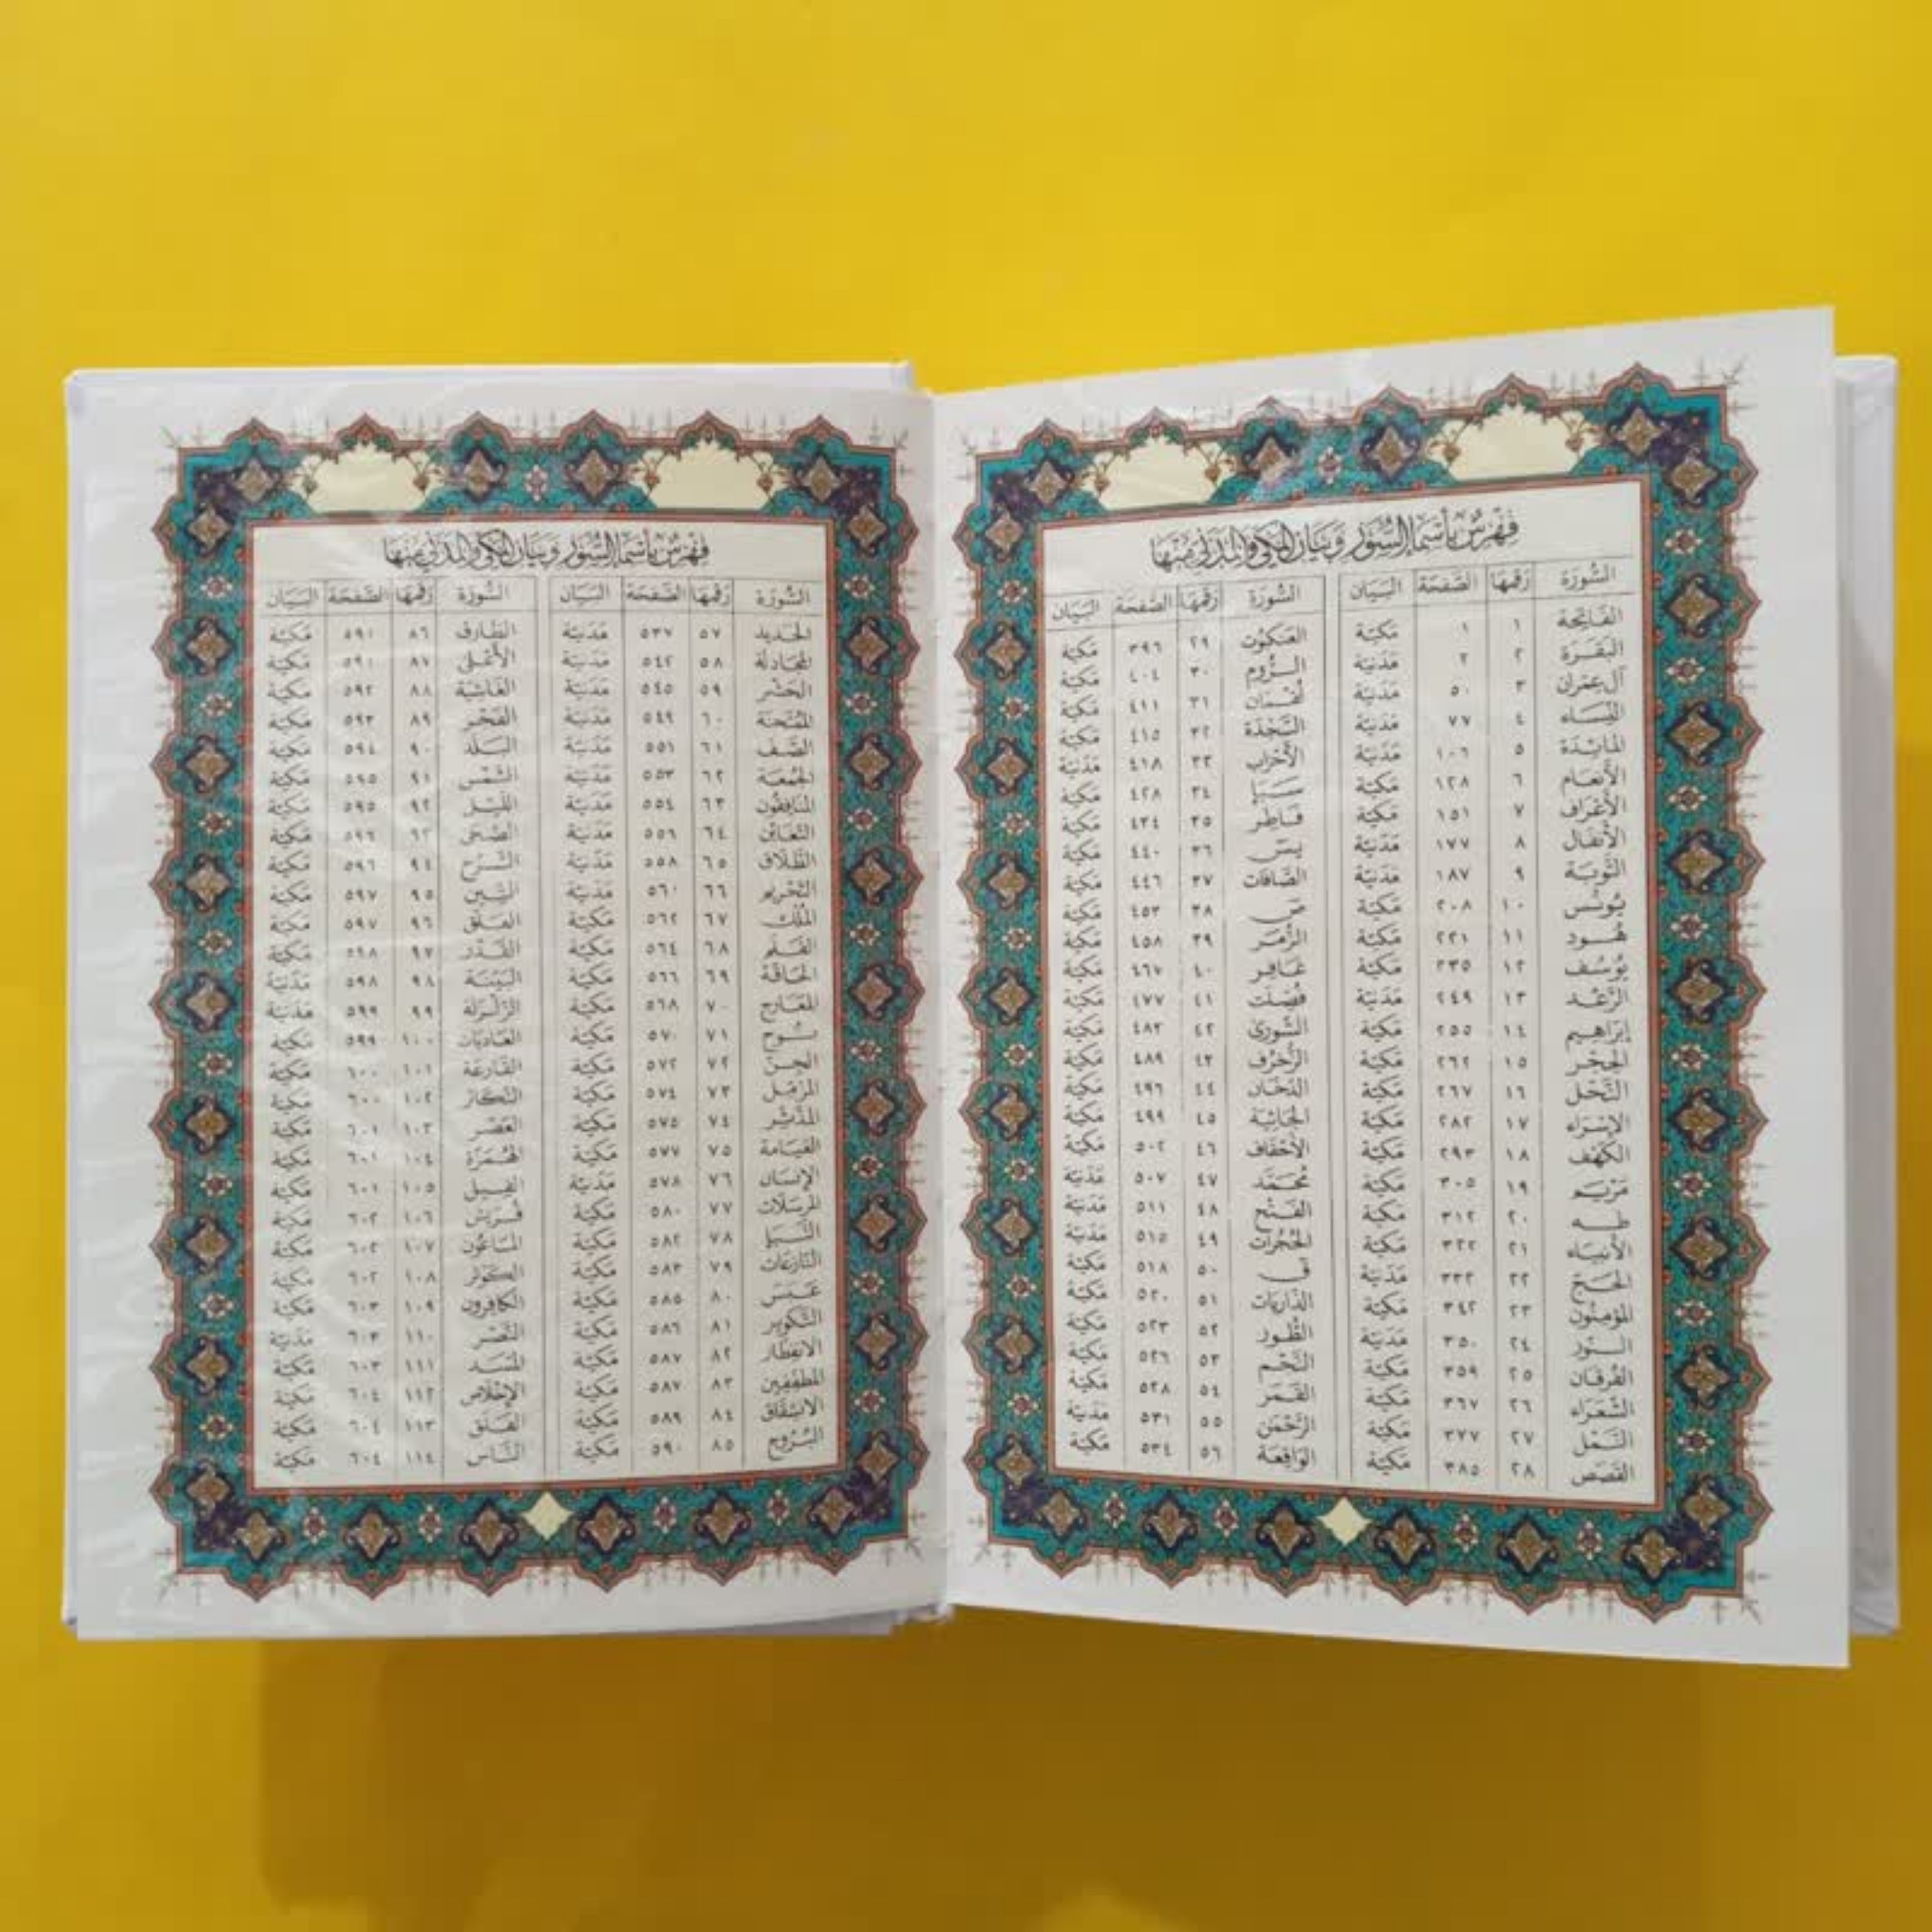 فهرس بأسماء السور وبيان المكي والمدني منها
السورة رقمها الصفحة البيان
الفاتحة ١ ١ مكية
البقرة ٢ ٢ مدنية
آل عمران ٣ ٥٠ مدنية
النساء ٤ ٧٧ مدنية
المائدة ٥ ١٠٦ مدنية
الأنعام ٦ ١٢٨ مكية
الأعراف ٧ ١٥١ مكية
الأنفال ٨ ١٧٧ مدنية
التوبة ٩ ١٨٧ مدنية
يونس ١٠ ٢٠٨ مكية
هود ١١ ٢٢١ مكية
يوسف ١٢ ٢٣٥ مكية
الرعد ١٣ ٢٤٩ مدنية
إبراهيم ١٤ ٢٥٥ مكية
الحجر ١٥ ٢٦٢ مكية
النحل ١٦ ٢٦٧ مكية
الإسراء ١٧ ٢٨٢ مكية
الكهف ١٨ ٢٩٣ مكية
مريم ١٩ ٣٠٥ مكية
طه ٢٠ ٣١٢ مكية
الأنبياء ٢١ ٣٢٢ مكية
الحج ٢٢ ٣٣٢ مدنية
المؤمنون ٢٣ ٣٤٢ مكية
النور ٢٤ ٣٥٠ مدنية
الفرقان ٢٥ ٣٥٩ مكية
الشعراء ٢٦ ٣٦٧ مكية
النمل ٢٧ ٣٧٧ مكية
القصص ٢٨ ٣٨٥ مكية
السورة رقمها الصفحة البيان
العنكبوت ٢٩ ٣٩٦ مكية
الروم ٣٠ ٤٠٤ مكية
لقمان ٣١ ٤١١ مكية
السجدة ٣٢ ٤١٥ مكية
الأحزاب ٣٣ ٤١٨ مدنية
سبإ ٣٤ ٤٢٨ مكية
فاطر ٣٥ ٤٣٤ مكية
يس ٣٦ ٤٤٠ مكية
الصافات ٣٧ ٤٤٦ مكية
ص ٣٨ ٤٥٣ مكية
الزمر ٣٩ ٤٥٨ مكية
غافر ٤٠ ٤٦٧ مكية
فصلت ٤١ ٤٧٧ مكية
الشورى ٤٢ ٤٨٣ مكية
الزخرف ٤٣ ٤٨٩ مكية
الدخان ٤٤ ٤٩٦ مكية
الجاثية ٤٥ ٤٩٩ مكية
الأحقاف ٤٦ ٥٠٢ مكية
محمد ٤٧ ٥٠٧ مدنية
الفتح ٤٨ ٥١١ مدنية
الحجرات ٤٩ ٥١٥ مدنية
ق ٥٠ ٥١٨ مكية
الذاريات ٥١ ٥٢٠ مكية
الطور ٥٢ ٥٢٣ مكية
النجم ٥٣ ٥٢٦ مكية
القمر ٥٤ ٥٢٨ مكية
الرحمن ٥٥ ٥٣١ مدنية
الواقعة ٥٦ ٥٣٤ مكية
فهرس بأسماء السور وبيان المكي والمدني منها
السورة رقمها الصفحة البيان
الحديد ٥٧ ٥٣٧ مدنية
المجادلة ٥٨ ٥٤٢ مدنية
الحشر ٥٩ ٥٤٥ مدنية
الممتحنة ٦٠ ٥٤٩ مدنية
الصف ٦١ ٥٥١ مدنية
الجمعة ٦٢ ٥٥٣ مدنية
المنافقون ٦٣ ٥٥٤ مدنية
التغابن ٦٤ ٥٥٦ مدنية
الطلاق ٦٥ ٥٥٨ مدنية
التحريم ٦٦ ٥٦٠ مدنية
الملك ٦٧ ٥٦٢ مكية
القلم ٦٨ ٥٦٤ مكية
الحاقة ٦٩ ٥٦٦ مكية
المعارج ٧٠ ٥٦٨ مكية
نوح ٧١ ٥٧٠ مكية
الجن ٧٢ ٥٧٢ مكية
المزمل ٧٣ ٥٧٤ مكية
المدثر ٧٤ ٥٧٥ مكية
القيامة ٧٥ ٥٧٧ مكية
الإنسان ٧٦ ٥٧٨ مدنية
المرسلات ٧٧ ٥٨٠ مكية
النبإ ٧٨ ٥٨٢ مكية
النازعات ٧٩ ٥٨٣ مكية
عبس ٨٠ ٥٨٥ مكية
التكوير ٨١ ٥٨٦ مكية
الانفطار ٨٢ ٥٨٧ مكية
المطففين ٨٣ ٥٨٧ مكية
الانشقاق ٨٤ ٥٨٩ مكية
البروج ٨٥ ٥٩٠ مكية
السورة رقمها الصفحة البيان
الطارق ٨٦ ٥٩١ مكية
الأعلى ٨٧ ٥٩١ مكية
الغاشية ٨٨ ٥٩٢ مكية
الفجر ٨٩ ٥٩٣ مكية
البلد ٩٠ ٥٩٤ مكية
الشمس ٩١ ٥٩٥ مكية
الليل ٩٢ ٥٩٥ مكية
الضحى ٩٣ ٥٩٦ مكية
الشرح ٩٤ ٥٩٦ مكية
التين ٩٥ ٥٩٧ مكية
العلق ٩٦ ٥٩٧ مكية
القدر ٩٧ ٥٩٨ مكية
البينة ٩٨ ٥٩٨ مدنية
الزلزلة ٩٩ ٥٩٩ مدنية
العاديات ١٠٠ ٥٩٩ مكية
القارعة ١٠١ ٦٠٠ مكية
التكاثر ١٠٢ ٦٠٠ مكية
العصر ١٠٣ ٦٠١ مكية
الهمزة ١٠٤ ٦٠١ مكية
الفيل ١٠٥ ٦٠١ مكية
قريش ١٠٦ ٦٠٢ مكية
الماعون ١٠٧ ٦٠٢ مكية
الكوثر ١٠٨ ٦٠٢ مكية
الكافرون ١٠٩ ٦٠٣ مكية
النصر ١١٠ ٦٠٣ مدنية
المسد ١١١ ٦٠٣ مكية
الإخلاص ١١٢ ٦٠٤ مكية
الفلق ١١٣ ٦٠٤ مكية
الناس ١١٤ ٦٠٤ مكية